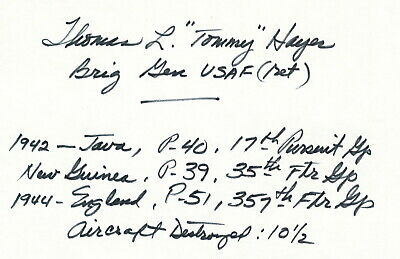 Thomas L. "Tommy" Hayes
Brig Gen USAF (ret)
1942 - Java, P-40, 17th Pursuit Gp
New Guinea, P-39, 35th Ftr Gp
1944 - England, P-51, 357th Ftr Gp
Aircraft Destroyed: 10 1/2